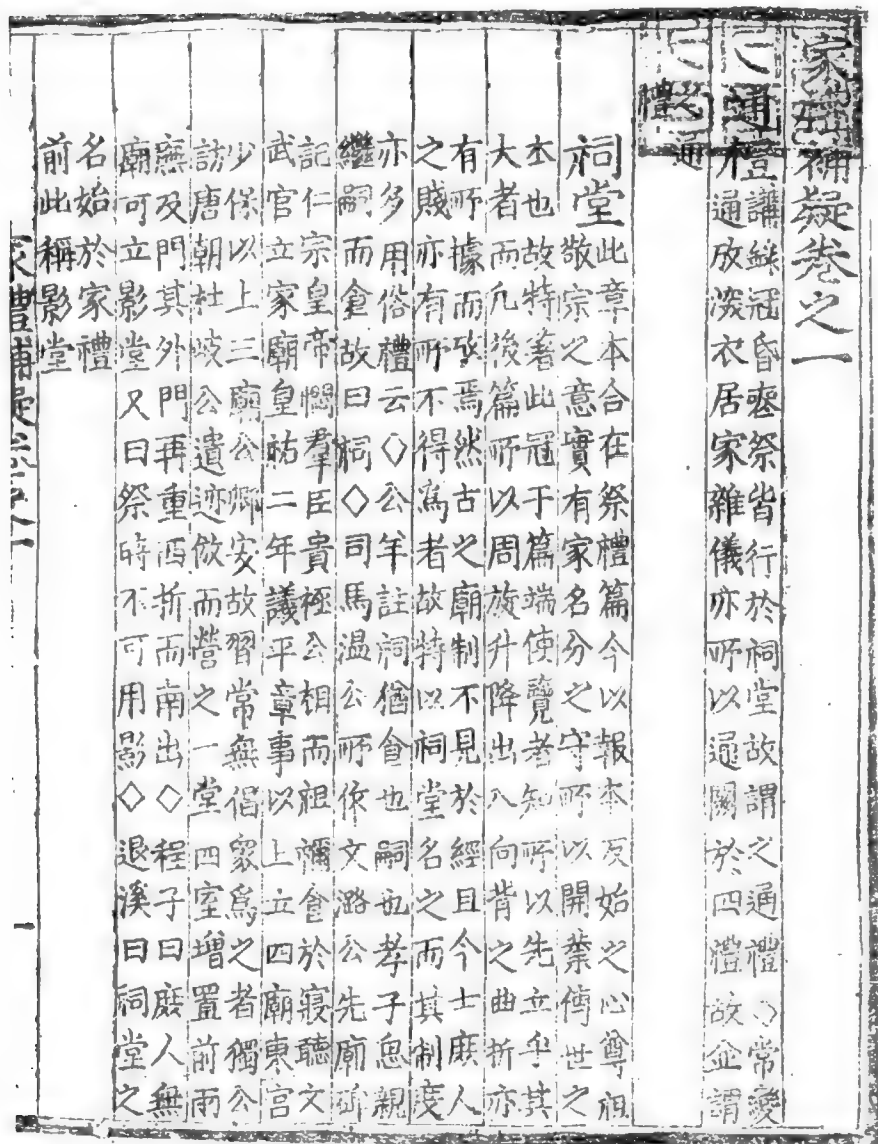 家禮補疑卷之一
通
冠昏喪祭皆行於祠堂故謂之通禮◇常變
通放深衣居家雜儀亦所以通關於四禮故並謂
之通
禮
祠堂
此章本合在祭禮篇今以報本反始之心尊祖
敬宗之意實有家名分之守所以開業傳世之
本也故特著此冠于篇端使覽者知所以先立乎其
大者而凡後篇所以周旋升降出入向背之曲折亦
有所據而攷焉然古之廟制不見於經且今士庶人
之賤亦有所不得爲者故特以祠堂名之而其制度
亦多用俗禮云◇公羊註祠猶食也嗣也孝子思親
繼嗣而食故曰祠◇司馬温公所作文潞公先廟碑
記仁宗皇帝憫羣臣貴極公相而祖禰食於寢聽文
武官立家廟皇祐二年議平章事以上立四廟東宮
少保以上三廟公卿安故習常無倡衆爲之者獨公
訪唐朝杜岐公遺迹倣而營之一堂四室增置前兩
廡及門其外門再重西折而南出◇程子曰庶人無
廟可立影堂又曰祭時不可用影◇退溪曰祠堂之
名始於家禮
前此稱影堂
家禮補疑卷之一
一